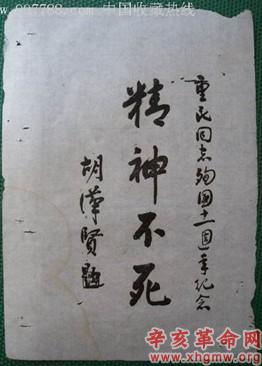 www.997788.com 中国收藏热线
重民同志殉国十一週年纪念
精神不死
胡漢賢題
辛亥革命网
www.xhgmw.org